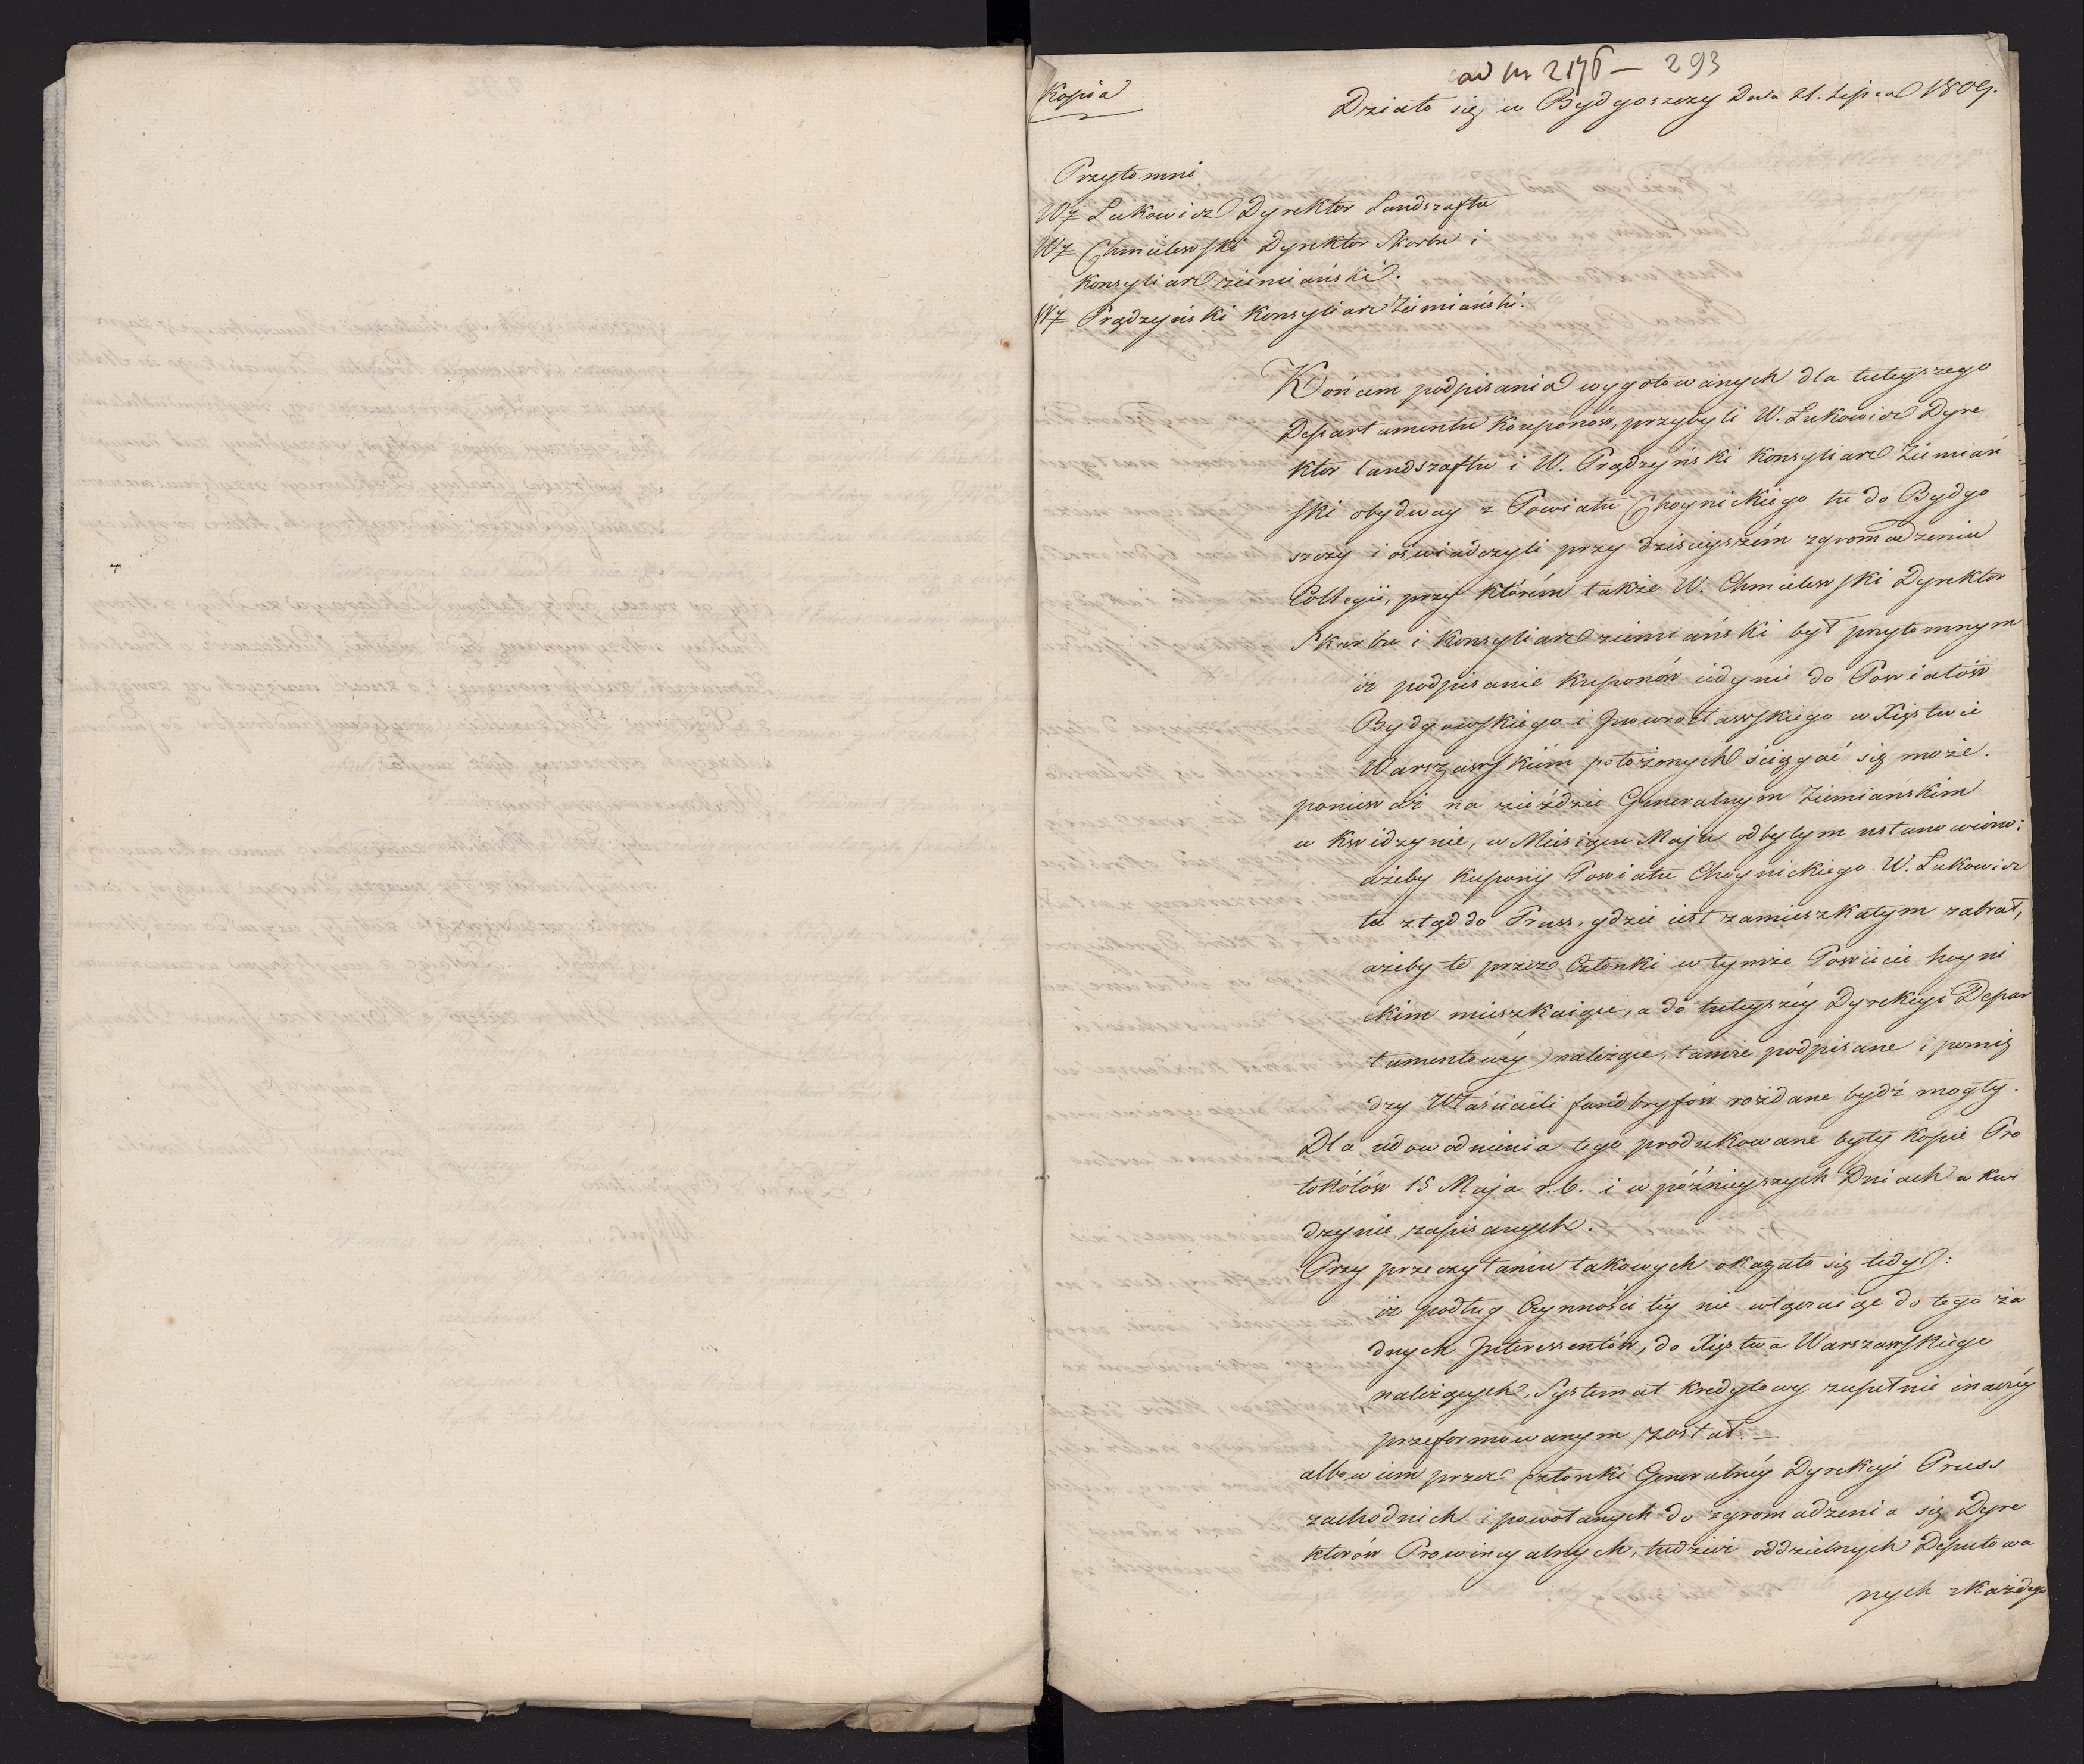 ad nr 2176 — 293
Kopia
Działo się w Bydgoszczy Dnia 21. Lipca 1809.
Przytomni
Wż Lukowicz Dyrektor Landszaftu
Wż Chmielewski Dyrektor Skarbu i
Konsyliarz ziemiański.
Wż Prądzyński Konsyliarz Ziemiański.
Końcem podpisania wygotowanych dla tuteyszego
Departamentu Kouponów, przybyli W. Lukowicz Dyre
ktor landszaftu i W. Prądzyński Konsyliarz Ziemiań
ski obydway z Powiatu Choynickiego tu do Bydgo
szczy i oświadczyli przy dzisieyszém zgromadzeniu
Collegii, przy którém także W. Chmielewski Dyrektor
Skarbu i Konsyliarz ziemiański był przytomnym
iż podpisanie kuponów iedynie do Powiatów
Bydgowskiego i Inowrocławskiego w Xięstwie
Warszawskiém położonych ściągać się może.
ponieważ na zieździe Generalnym Ziemiańskim
w Kwidzynie, w Miesiącu Maju odbytym ustanowiono:
ażeby kupony Powiatu Choynickiego W. Lukowicz
tu ztąd do Pruss, gdzie iest zamieszkałym zabrał,
ażeby te przez Członki w tymże Powiecie hoyni
ckim mieszkaiące, a do tuteyszéy Dyrekcyi Depar
tamentowéy należące, tamże podpisane i pomię
dzy Właścicieli fandbryfów rozdane bydź mogły.
Dla udowodnienia tego produkowane były kopie Pro
tokółów 15 Maja r.b. i w późnieyszych Dniach w Kwi
dzynie zapisanych.
Przy przeczytaniu takowych okazało się tedy:
iż podług Czynności téy nie wtączaiąc do tego ża
dnych Interessentów, do Xięstwa Warszawskiego
należących, Systemat kredytowy zupełnie inaczéy
przeformowanym został. —
albowiem przez członki Generalnéy Dyrekcyi Pruss
zachodnich i powołanych do zgromadzenia się Dyre
ktorów Prowincyalnych, tudzież oddzielnych Deputowa
nych z każdego